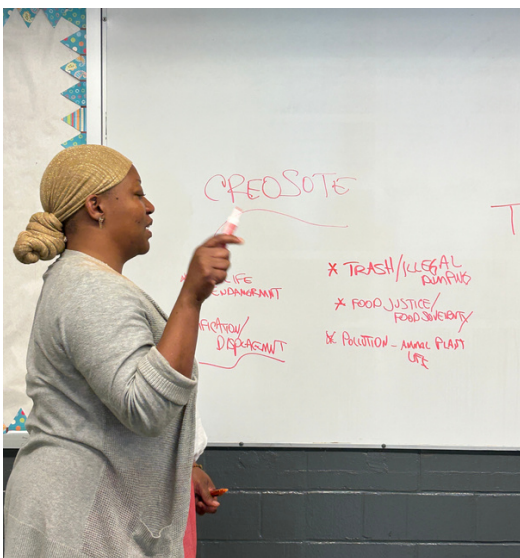 CREOSOTE
T
LIFE
ENDANGERMENT
IFICATION/
DISPLACEMENT
* TRASH/ILLEGAL
DUMPING
* FOOD JUSTICE/
FOOD SOVEREIGNTY
* POLLUTION - ANIMAL PLANT
LIFE